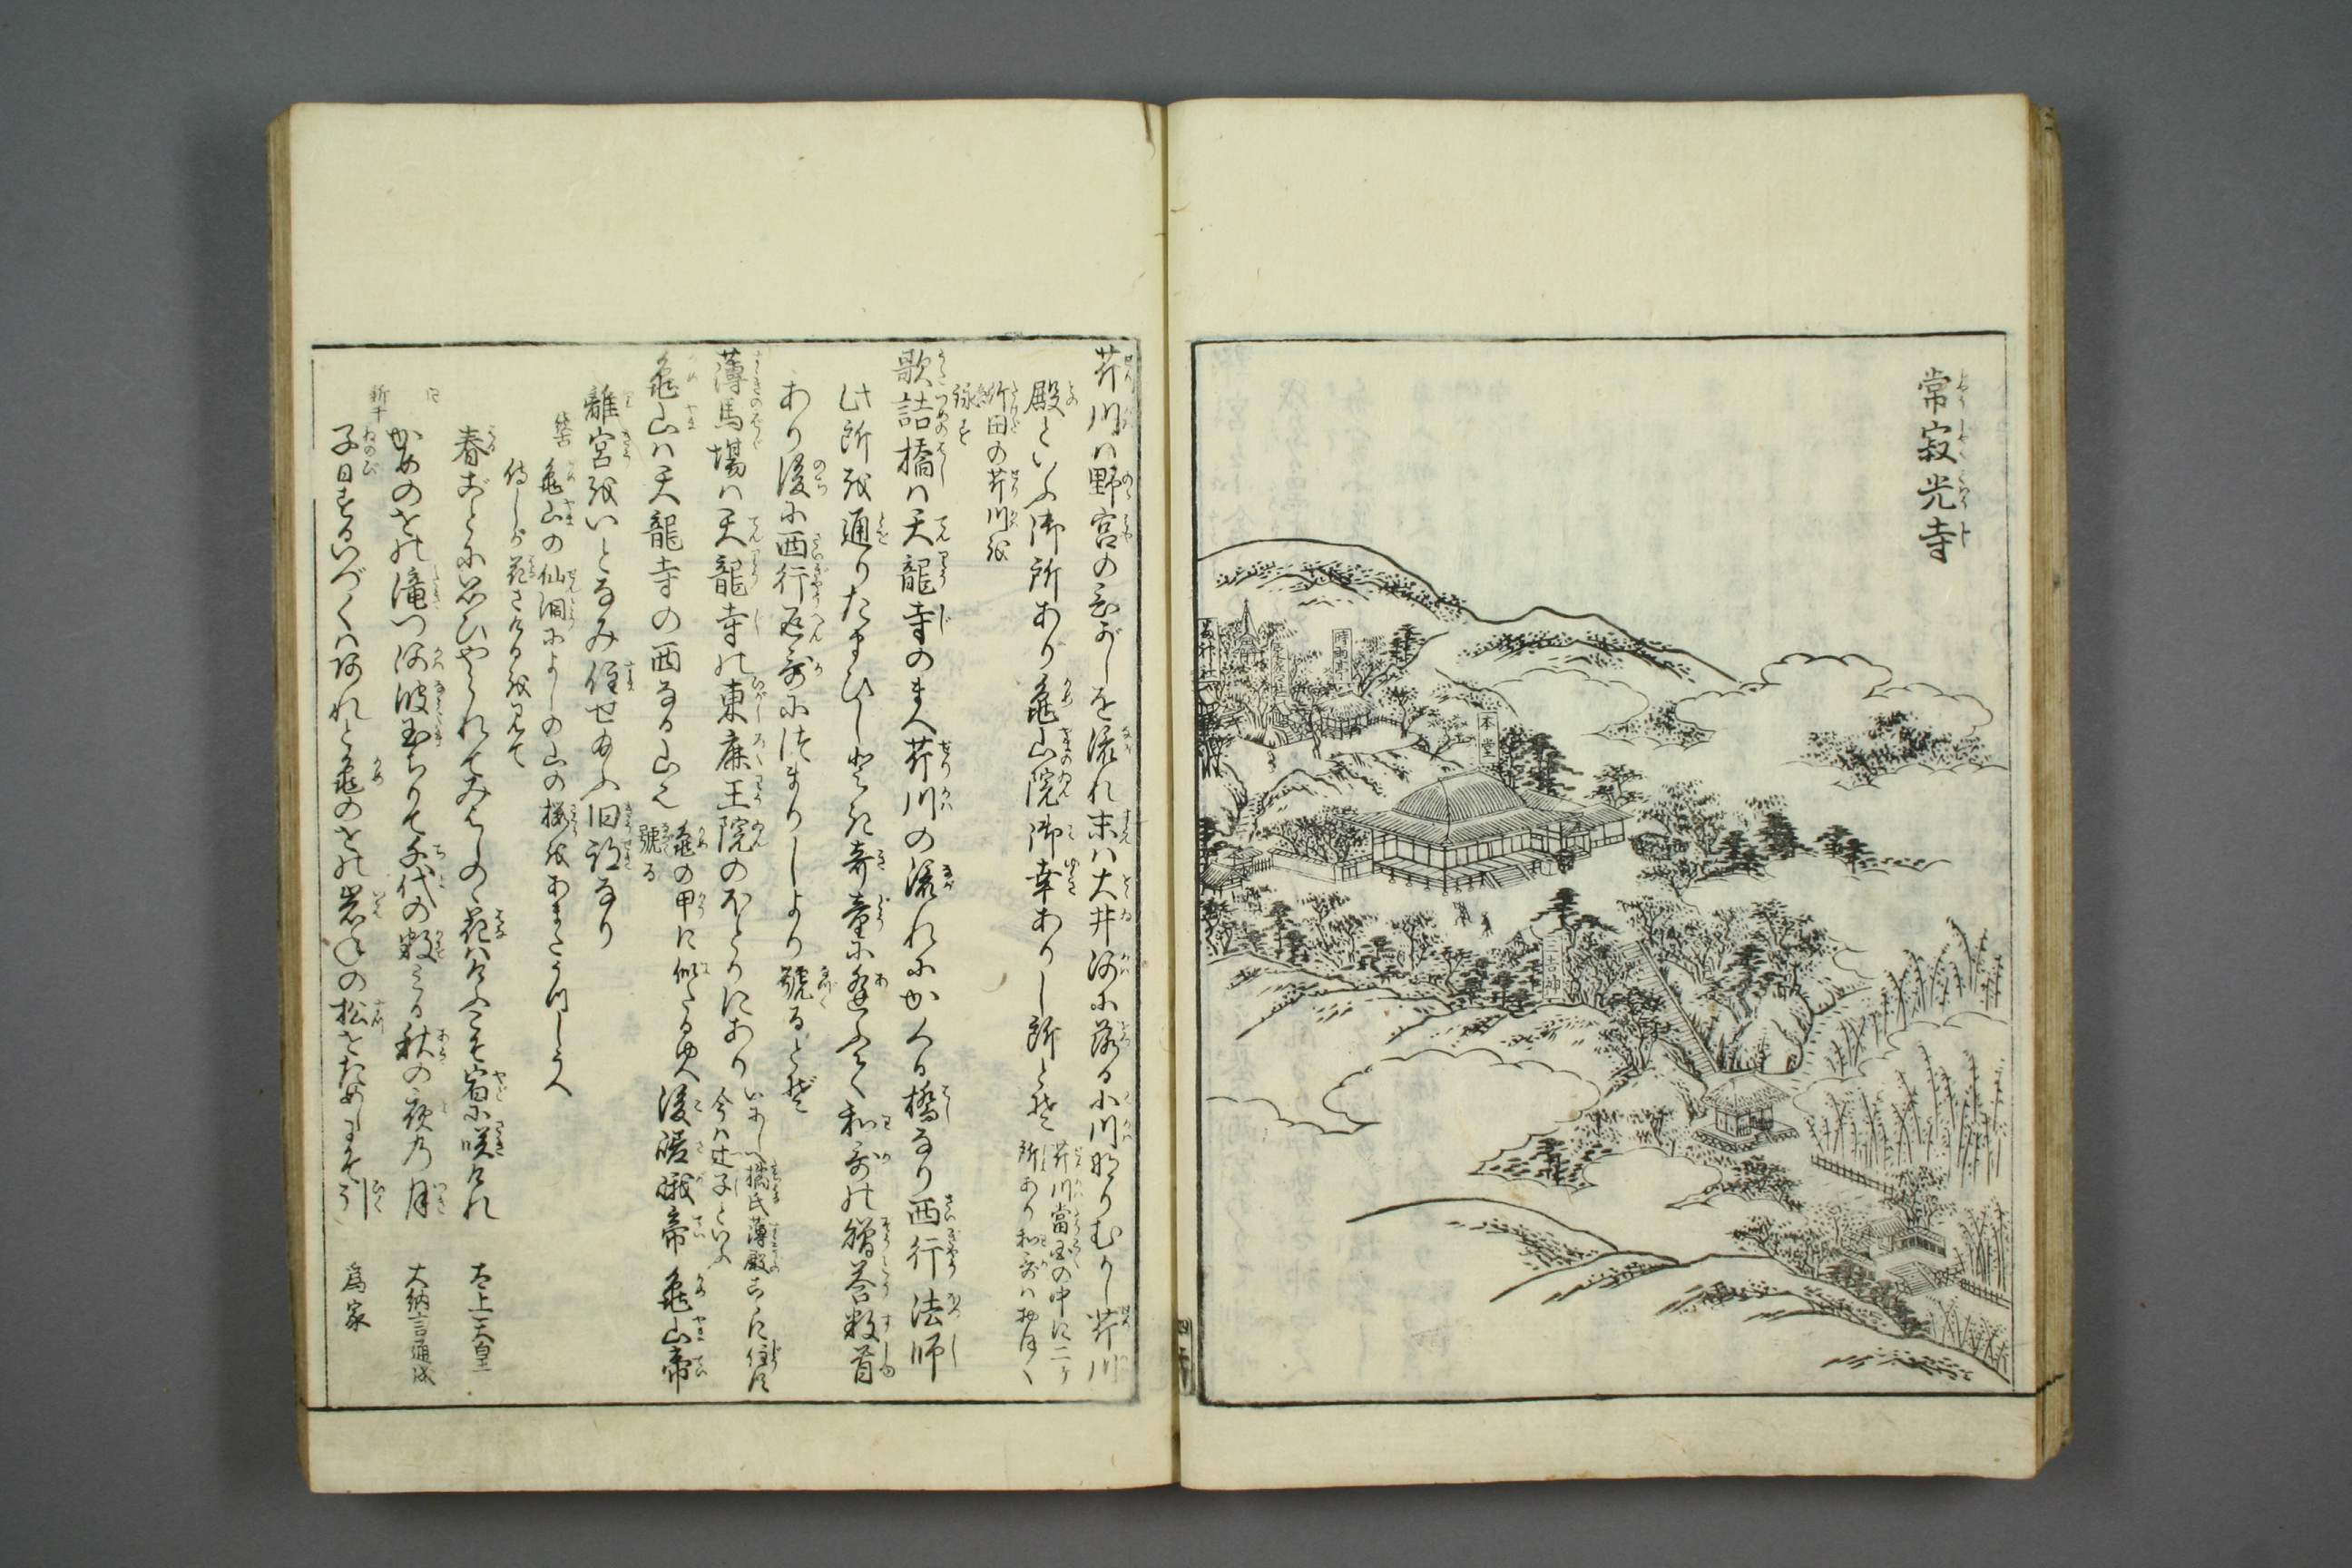 常寂光寺
時雨亭
本堂
三吉神
芹川は野宮のひがしを流れ末は大井河に落る小川なりむかし芹川
殿といふ御所あり亀山院御幸ありし所とぞ芹川當国の中に二ケ
所あり和哥はおほく
竹田の芹川を
詠ず
歌詰橋は天龍寺のまへ芹川の流れにかくる橋なり西行法師
此所を通りたまひし時奇童に逢ふて和哥の贈答数首
あり後に西行返哥につまりしより號るとぞ
薄馬場は天龍寺の東鹿王院のほとりにありいにしへ橘氏薄殿こゝに住す
今は辻子といふ
亀山は天龍寺の西なる山也亀の甲に似たるゆへ
號る
後嵯峨帝亀山帝
離宮をいとなみ住せ給ふ旧跡なり
續古
亀山の仙洞によしの山の桜をあまたうつしうへ
侍しが花さけるを見て
春ごとに思ひやられてみよしのゝ花はけふこそ宿に咲けれ
太上天皇
同
かめのをの滝つ河波玉ちりて千代の数みる秋の夜乃月
大納言通成
新千
子日するいづくはあれと亀のをの岩ねの松をためしにぞ引
為家